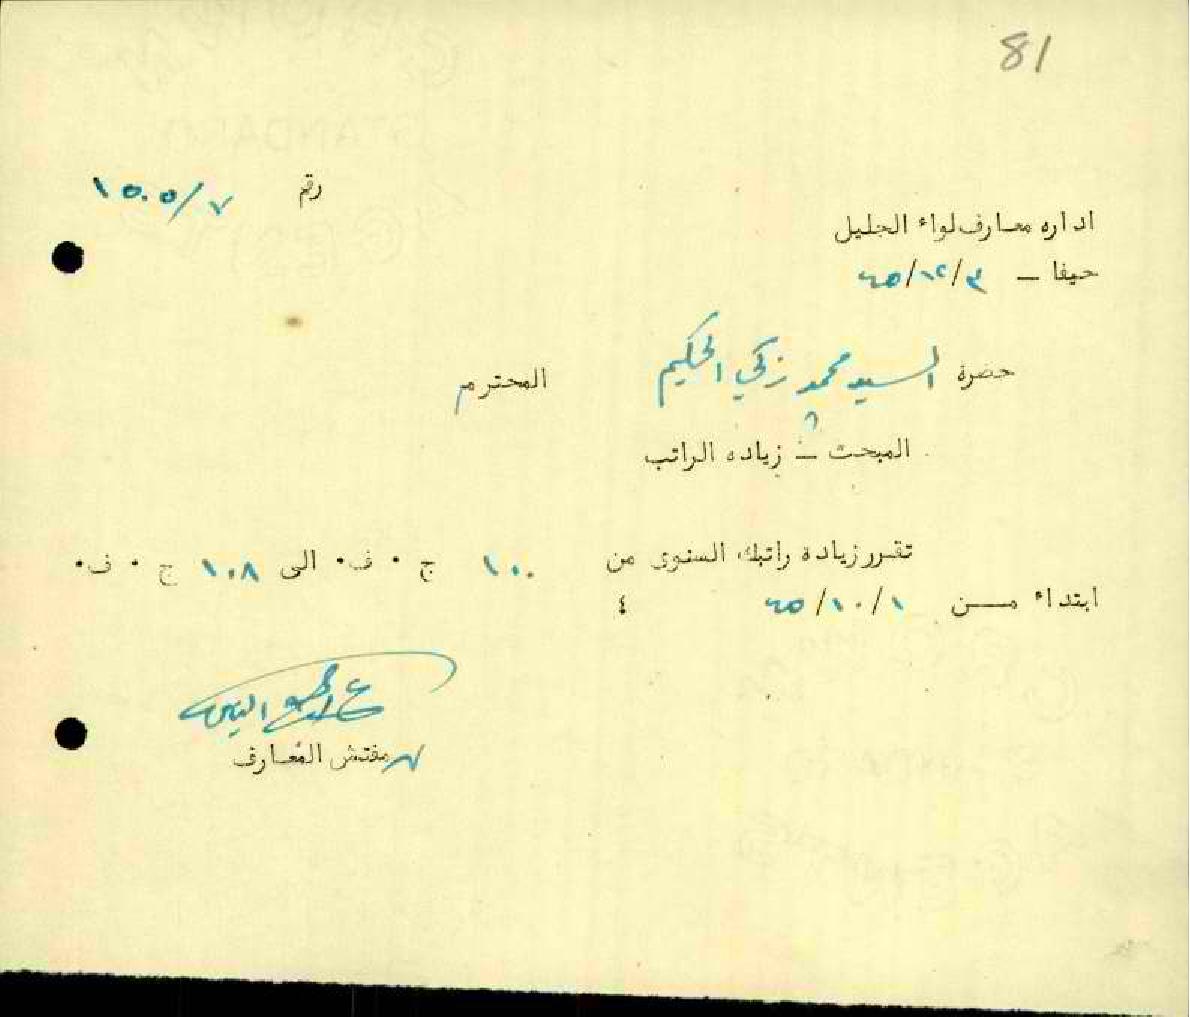 81
رقم ٧/١٥٠٥
اداره معارف لواء الجليل
حيفا – ٣/١٢/٤٥
حضرة السيد محمد زكي الحكيم المحترم
المبحث – زياده الراتب
تقرر زيادة راتبك السنوى من ١٠٠ ج ٠ ف ٠ الى ١٠٨ ج ٠ ف ٠
ابتداء مــن ١/١٠/٤٥ ٤
مفتش المعارف